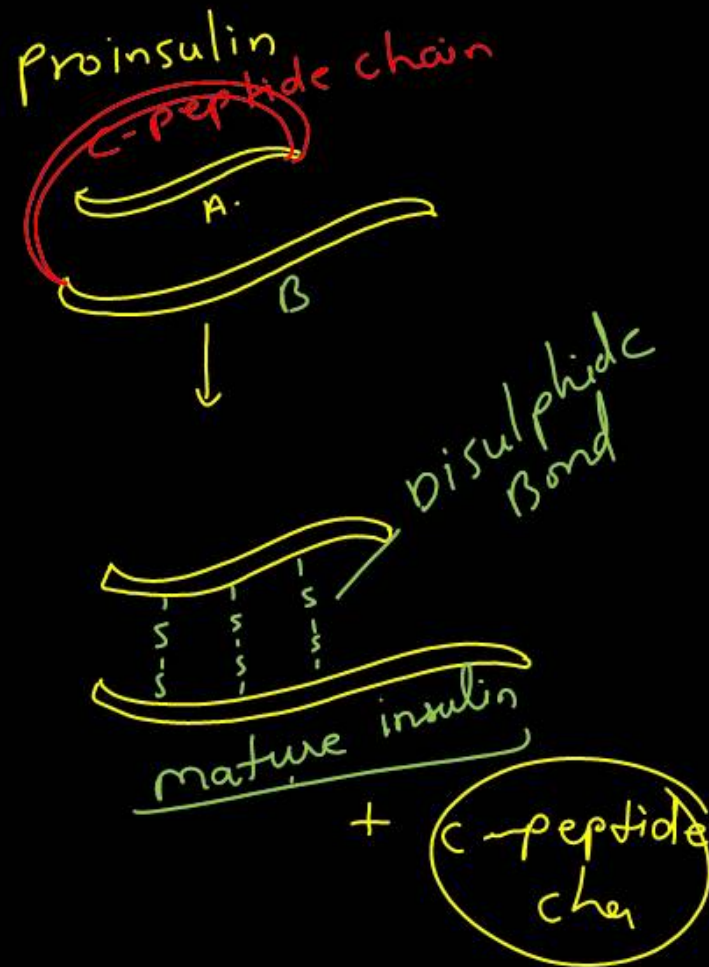 Proinsulin
C-peptide chain
A.
B
Disulphide
Bond
S S S
S S S
mature insulin
+ C-peptide
cha